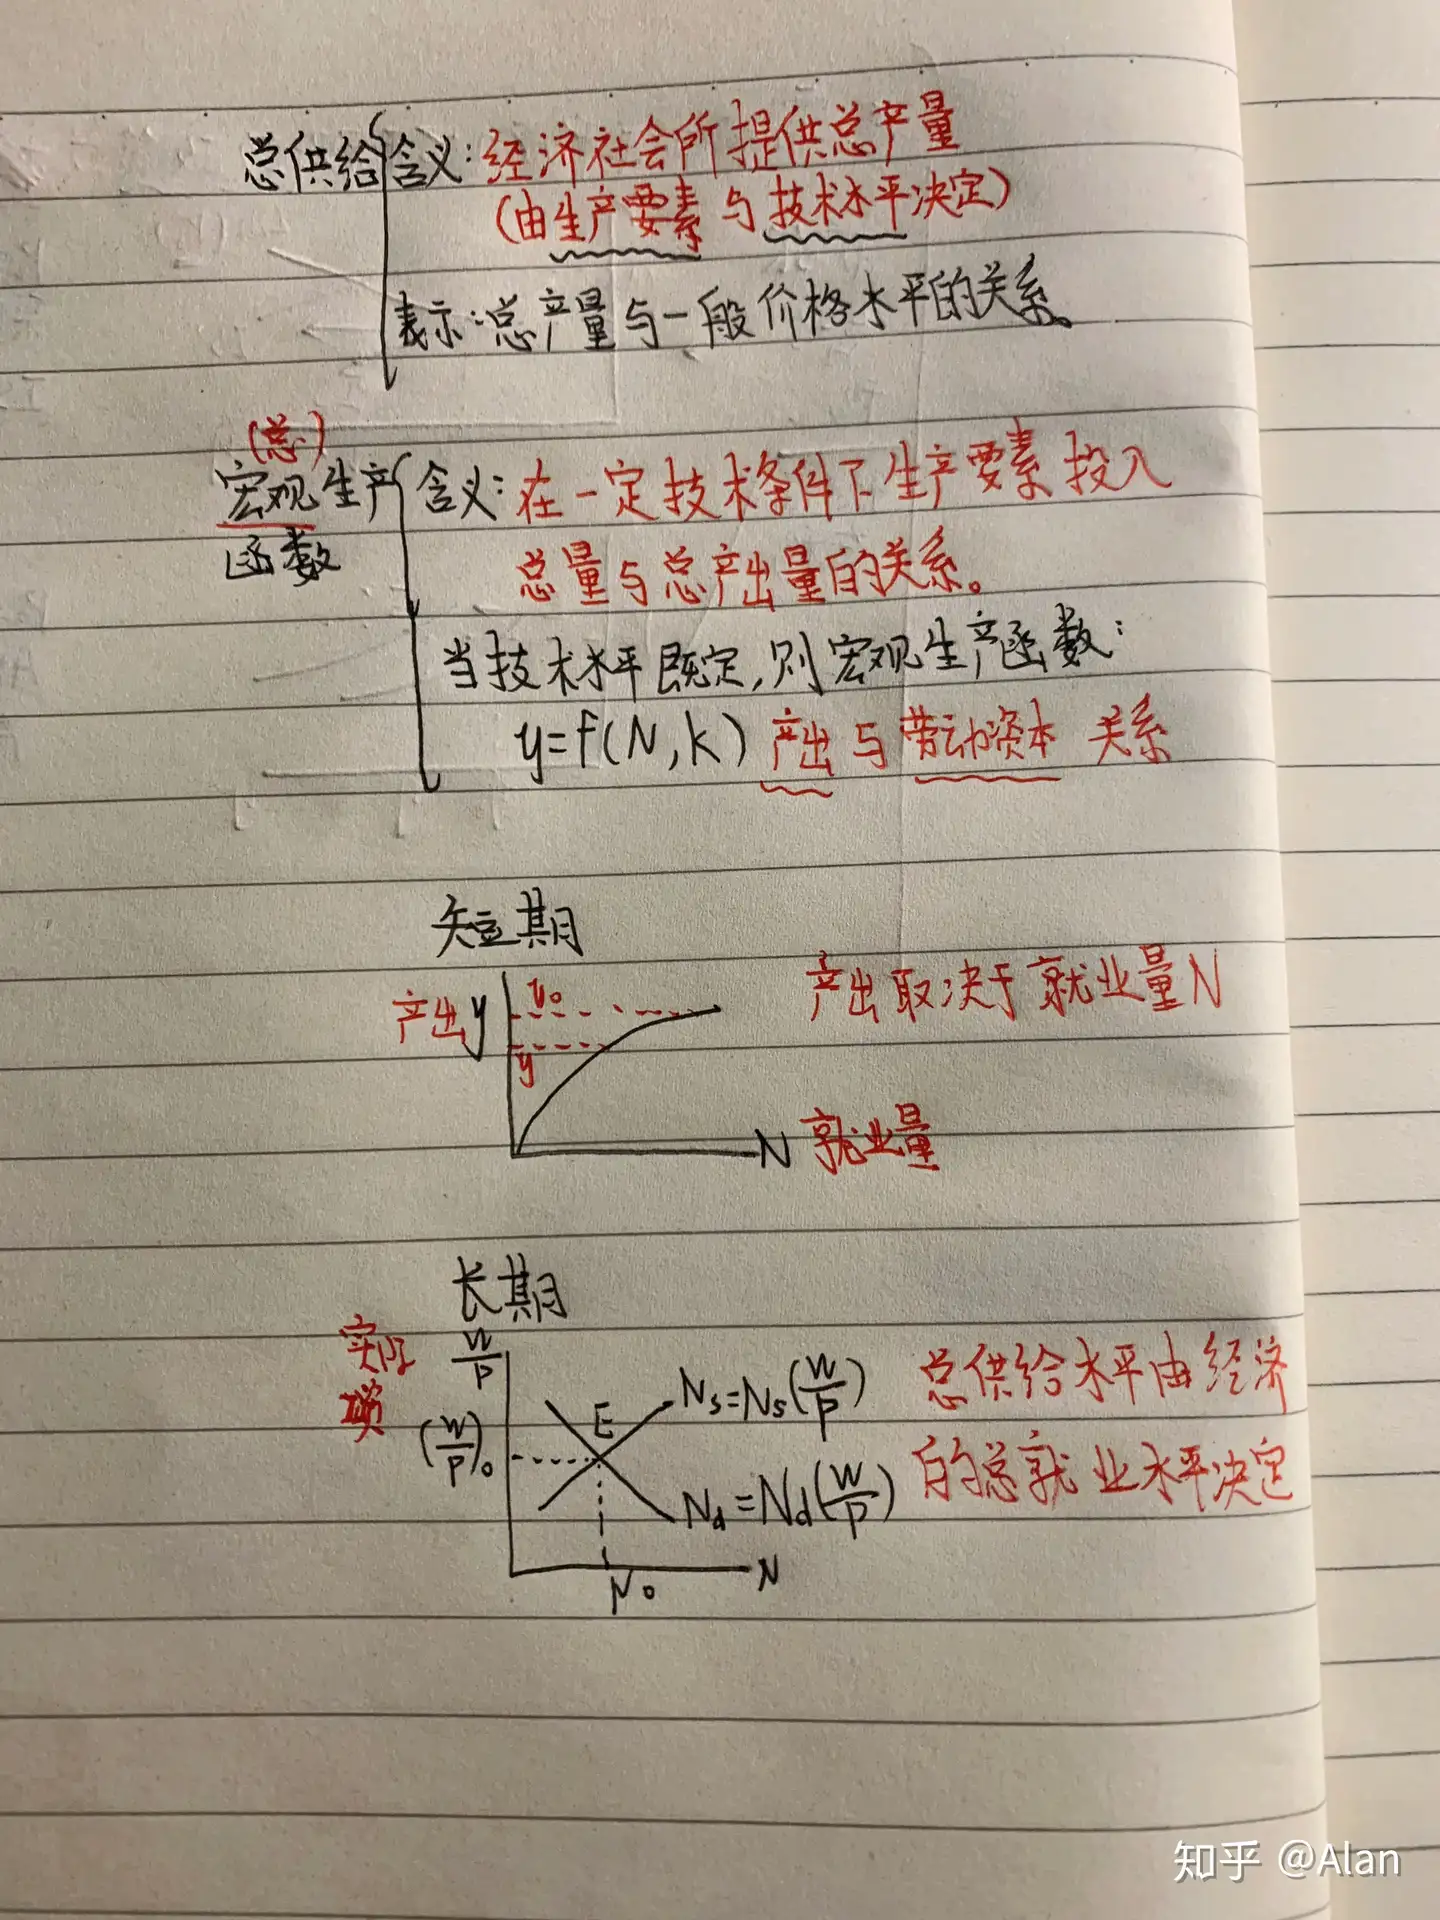 总供给 含义:经济社会所提供总产量
(由生产要素与技术水平决定)
表示:总产量与一般价格水平的关系。
(总)
宏观生产 含义:在一定技术条件下生产要素投入
函数 总量与总产出量的关系。
当技术水平既定,则宏观生产函数:
y=f(N,K) 产出与劳动资本 关系
短期
产出y y₀ 产出取决于就业量N
y
N 就业量
长期
实际 W/P Ns=Ns(W/P) 总供给水平由经济
E
(W/P)₀ Nd=Nd(W/P) 的总就业水平决定
N₀ N
知乎 @Alan